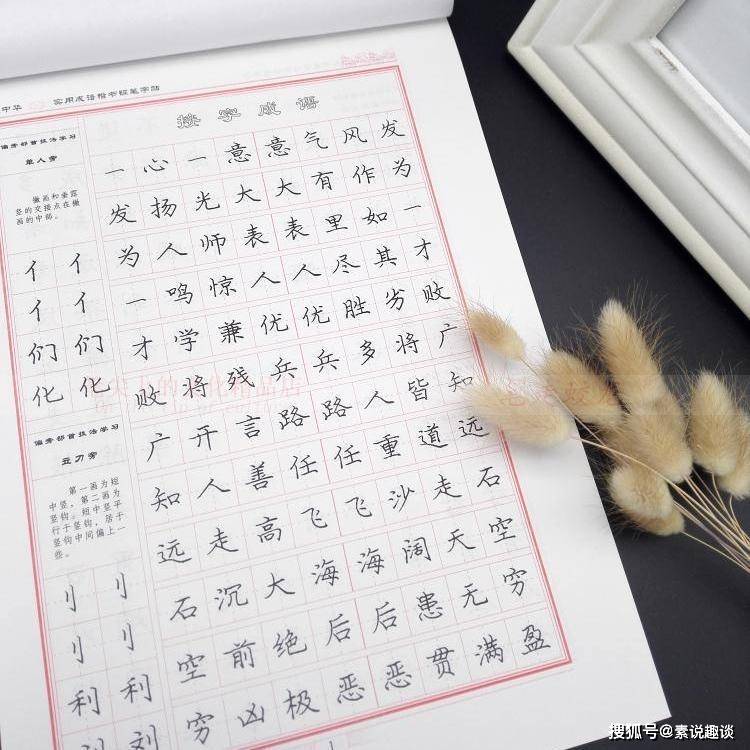 中华
实用成语楷书钢笔字帖
接字成语
一心一意意气风发
发扬光大大有作为
为人师表表里如一
一鸣惊人人尽其才
才学兼优优胜劣败
败将残兵兵多将广
广开言路路人皆知
知人善任任重道远
远走高飞飞沙走石
石沉大海海阔天空
空前绝后后患无穷
穷凶极恶恶贯满盈
偏旁部首技法学习
单人旁
撇画和垂露
竖的交接点在撇
画的中部。
亻亻
亻亻
们们
化化
偏旁部首技法学习
立刀旁
第一画为短
中竖，第二画为
竖钩。短中竖平
行于竖钩，居于
竖钩中间偏上一
些。
刂刂
刂刂
利利
刘
1
搜狐号@素说趣谈